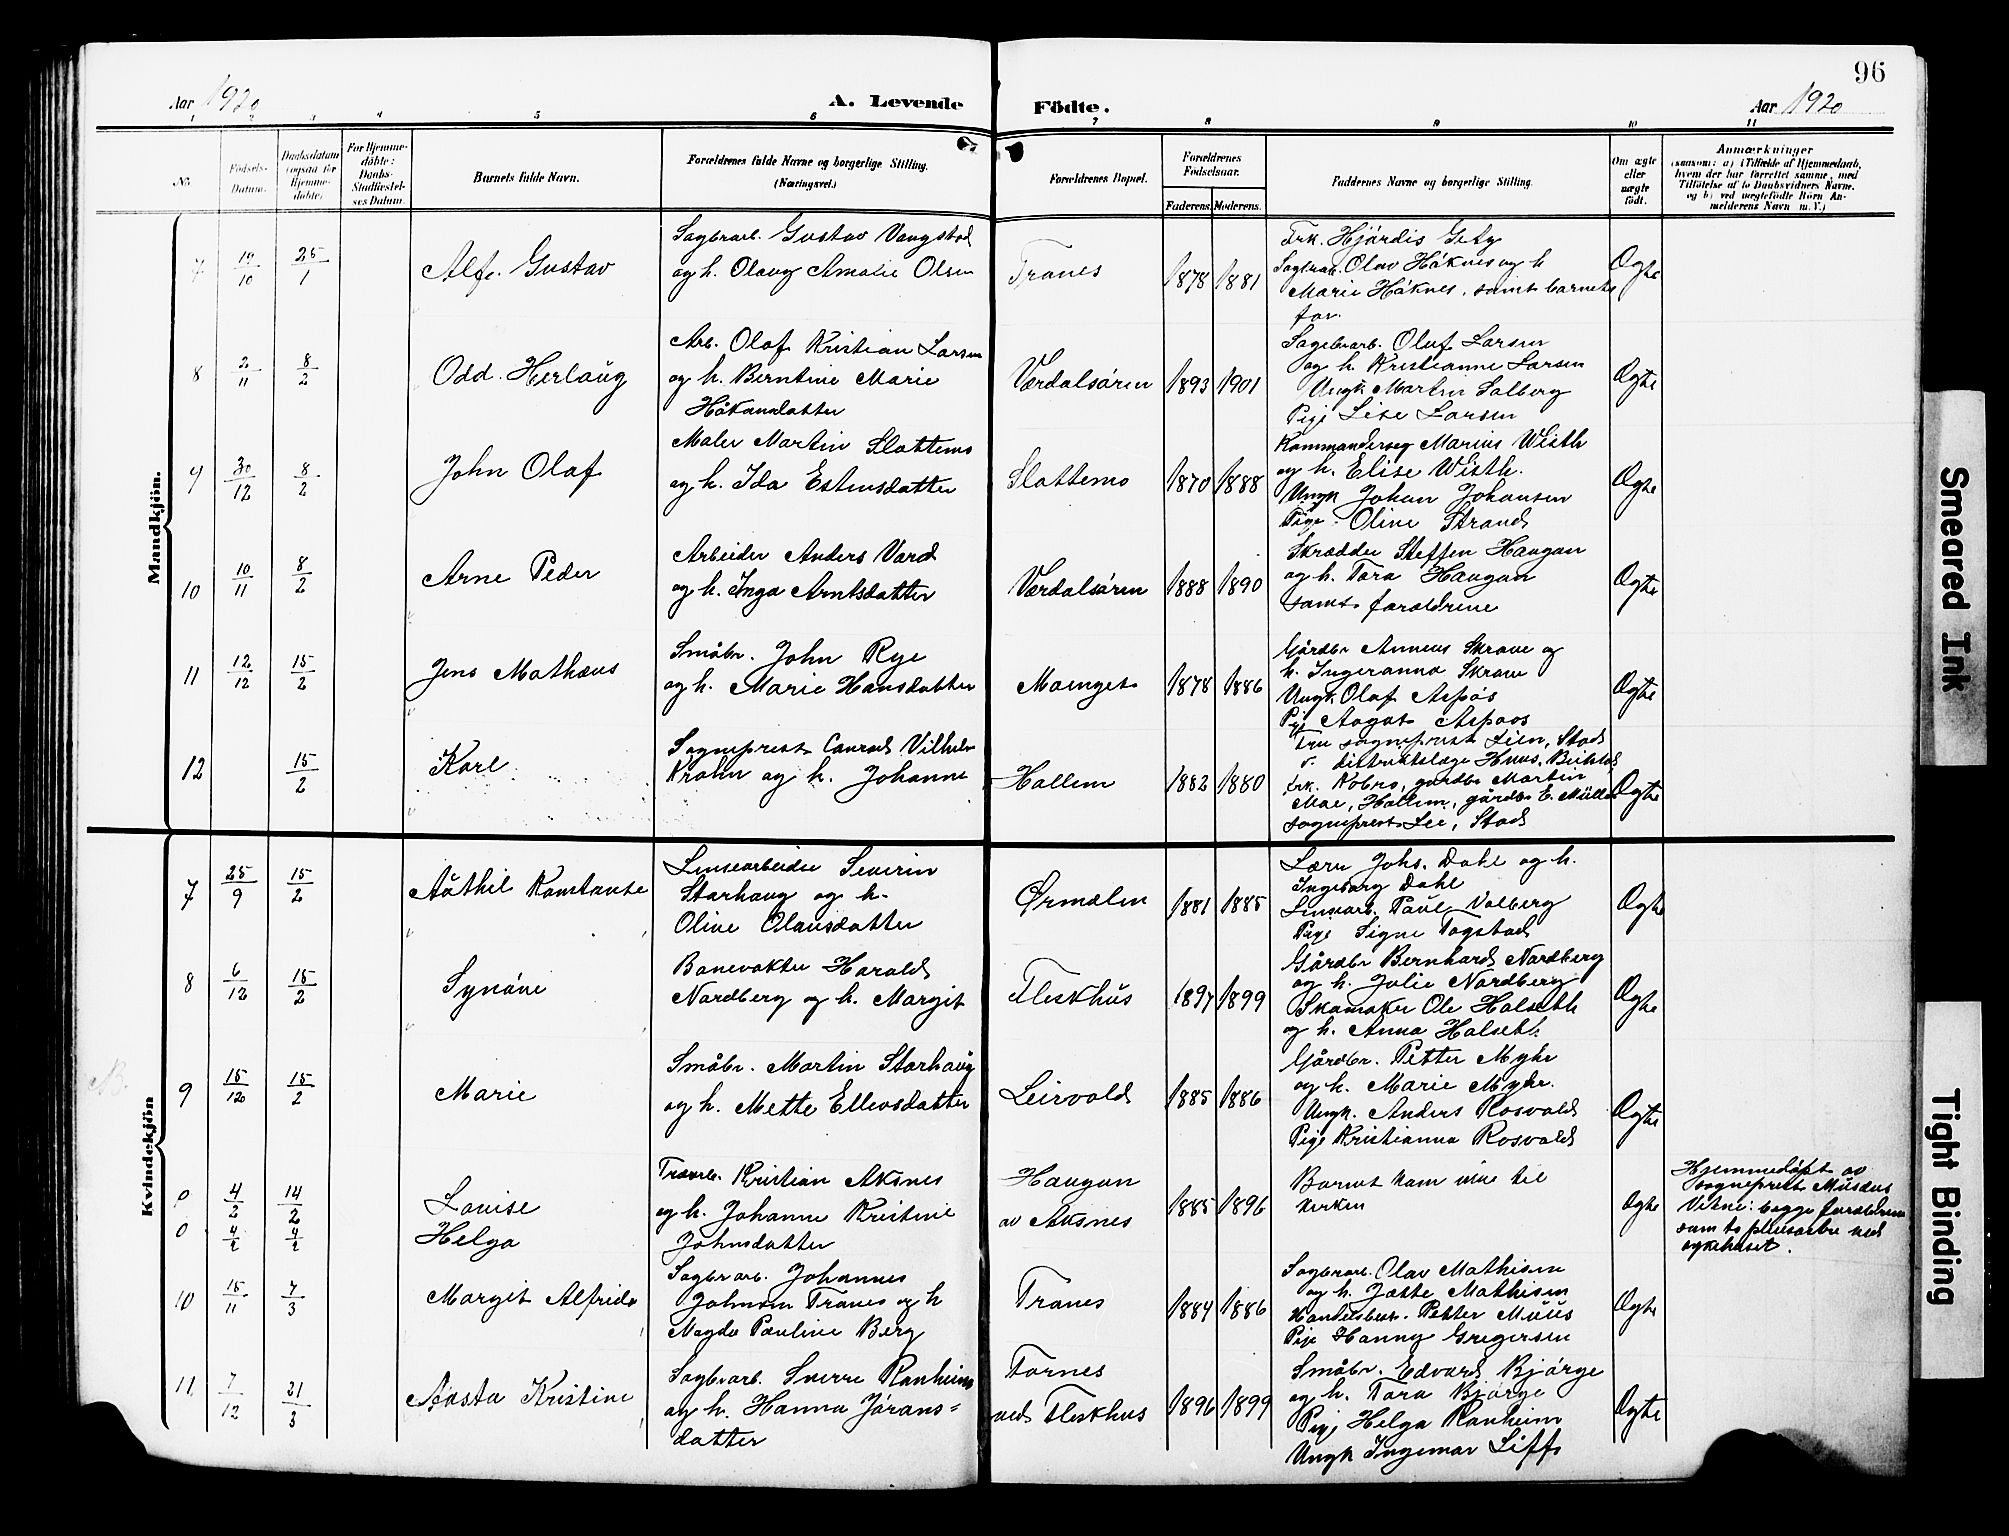 96
Aar 1920
A. Levende Födte.
Aar 1920
1 2 3 4 5 6 7 8 9 10 11
No.
Födsels-Datum.
Daabsdatum (ogsaa for Hjemmedöbte)
For Hjemmedöbte: Daabs-Stadfæstelses Datum.
Barnets fulde Navn.
Forældrenes fulde Navne og borgerlige Stilling. (Næringsvei.)
Forældrenes Bopæl.
Forældrenes Födselsaar.
Faderens. Moderens.
Faddernes Navne og borgerlige Stilling.
Om ægte eller uægte födt.
Anmærkninger
(saasom: a) i Tilfælde af Hjemmedaab, hvem der har forrettet samme, med Tilföielse af to Daabsvidners Navne, og b) ved uægtefödte Börn Anmelderens Navn m. V.)
Mandkjön.
7 19/10 25/1 Alf. Gustav
Sagbrarb. Gustav Vangstad
og h. Olaug Amalie Olsen
Tranes 1878 1881
Frk. Hjördis Getz
Sagbrarb. Olav Håknes og h
Marie Håknes, samt barnets
far.
Ægte
8 2/11 8/2 Odd. Herlaug
Arb. Olaf Kristian Larsen
og h. Berntine Marie
Håkansdatter
Værdalsören 1893 1901
Sagbrarb. Oluf Larsen
og h. Kristianne Larsen
Ungk Martin Solberg
Pige Lise Larsen
Ægte
9 30/12 8/2 John Olaf
Maler Martin Slottemo
og h. Ida Estensdatter
Slottemo 1870 1888
Kommandersrg Marius Wisth
og h. Elise Wisth.
Ungk Johan Johansen
Pige. Oline Strand
Ægte
10 10/11 8/2 Arne Peder
Arbeider Anders Vard
og h. Inga Arntsdatter
Værdalsören 1888 1890
Skrædder Steffen Haugan
og h. Tora Haugan
samt foreldrene
Ægte
11 12/12 15/2 Jens Mathæus
Småbr. John Rye
og h. Marie Hansdatter
Moenget 1878 1886
Gårdbr Anneus Skrove og
h. Ingeranna Skrove
Ungk Olaf Aspås
Pige Aagot Aspaas
Ægte
12 15/2 Karl
Sogneprest Conrad Vilhelm
Krohn og h. Johanne
Hallem 1882 1880
Fru sogneprest Lien, Stod
distriktslæge Huus, Beitstad
frk. Kobro, gårdbr Martin
Moe, Hallem, gårdbr E. Müller
sogneprest Lie, Stod
Ægte
Kvindekjön
7 25/9 15/2 Aåthil Konstanse
Linsearbeider Severin
Storhaug og h.
Olive Olausdatter
Ørmelen 1881 1885
Lærer Johs. Dahl og h.
Ingeborg Dahl
Linsearb. Paul Volberg
Pige Signe Togstad
Ægte
8 6/12 15/2 Synöve
Banevokter Harald
Nordberg og h. Margit
Fleskhus 1897 1899
Gårdbr Bernhard Nordberg
og h. Julie Nordberg
Skomaker Ole Halseth
og h. Anna Halseth.
Ægte
9 15/12 15/2 Marie
Småbr. Martin Storhaug
og h. Mette Ellevsdatter
Leirvold 1885 1886
Gårdbr. Petter Myhr
og h. Marie Myhr.
Ungk. Anders Rosvold
Pige Kristianna Rosvold
Ægte
0 4/2 14/2 Louise
0 4/2 4/2 Helga
Træarb. Kristian Aksnes
og h. Johanne Kristine
Johnsdatter
Haugan
av Aksnes 1885 1896
Barnet kom ikke til
kirken
Ægte
Hjemmedöpt av
sogneprest Musæus
Vitne: begge foreldrene
samt to pleiersker ved
sykehuset.
10 15/11 7/3 Margit Alfrida
Sagbrarb. Johannes
Johnsen Tranes og h
Magda Pauline Berg
Tranes 1884 1886
Sagbrarb. Olav Mathisen
og h. Jætte Mathisen
Handelsbest. Petter Muus
Pige Hanny Gregersen
Ægte
11 7/12 21/3 Aasta Kristine
Sagbrarb. Sverre Ranheim
og h. Hanna Jörans=
datter
Tornes
ved Fleskhus 1896 1899
Småbr. Edvard Bjørge
og h. Tora Bjørge
Pige Helga Ranheim
Ungk Ingemar Liff
Ægte
Smeared Ink
Tight Binding